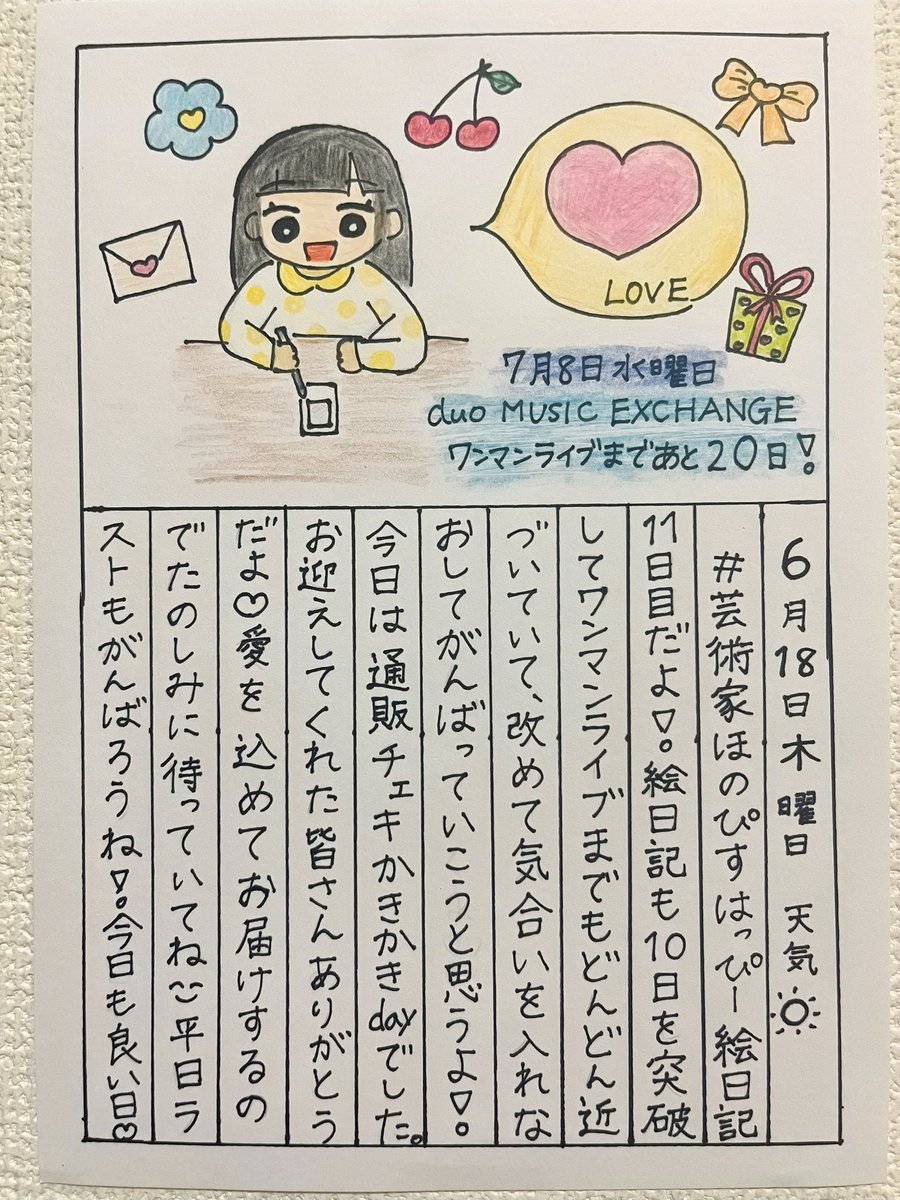 LOVE
7月8日水曜日
duo MUSIC EXCHANGE
ワンマンライブまであと20日!
6月18日木曜日 天気
#芸術家ほのぴすはっぴー絵日記
11日目だよ!。絵日記も10日を突破
してワンマンライブまでもどんどん近
づいていて、改めて気合いを入れな
おしてがんばっていこうと思うよ!。
今日は通販チェキかきかきdayでした。
お迎えしてくれた皆さんありがとう
だよ♡愛を込めてお届けするの
でたのしみに待っていてね 平日ラ
ストもがんばろうね!。今日も良い日♡